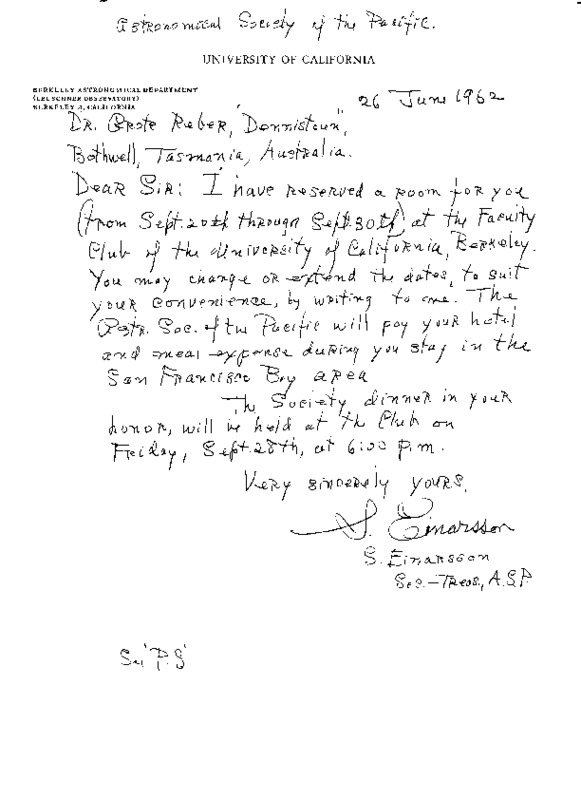 Astronomical Society of the Pacific.
UNIVERSITY OF CALIFORNIA
BERKELEY ASTRONOMICAL DEPARTMENT
(LEUSCHNER OBSERVATORY)
BERKELEY 4, CALIFORNIA
26 June 1962
Dr. Grote Reber, "Dennistoun",
Bothwell, Tasmania, Australia.
Dear Sir: I have reserved a room for you
(from Sept. 20th through Sept. 30th) at the Faculty
Club of the University of California, Berkeley.
You may change or extend the dates, to suit
your convenience, by writing to me. The
Astr. Soc. of the Pacific will pay your hotel
and meal expense during you stay in the
San Francisco Bay area
The Society dinner in your
honor, will be held at the Club on
Friday, Sept. 28th, at 6:00 p.m.
Very sincerely yours,
S. Einarsson
S. Einarsson
Sec.-Treas., A.S.P.
See 'P.S'